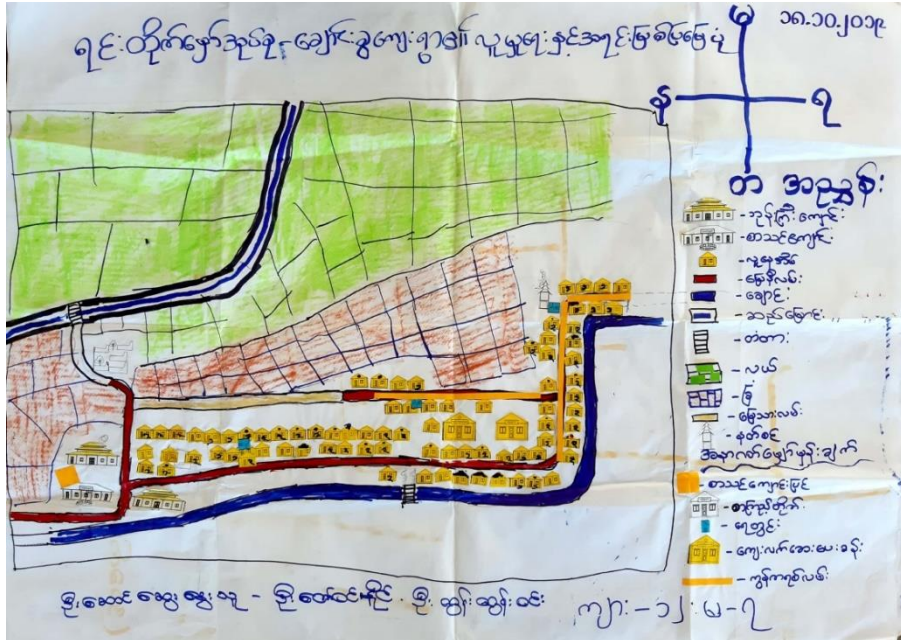 ၁၈.၁၀.၂၀၁၉
ရင်းတိုက်မှော်အုပ်စု-ချောင်းခွကျေးရွာ၏ လူမှုရေးနှင့်အရင်းမြစ်ပြမြေပုံ
မ
န်
ရ
တ
အညွှန်း
- ဘုန်းကြီးကျောင်း
- စာသင်ကျောင်း
- လူနေအိမ်
- မြေနီလမ်း
- ချောင်း
- ဆည်မြောင်း
- တံတား
- လယ်
- ခြံ
- မြေသားလမ်း
- နတ်စင်
အနာဂတ်မျှော်မှန်းချက်
- စာသင်ကျောင်းမြင်
- စာကြည့်တိုက်
- ရေတွင်း
- ကျေးလက်ဆေးပေးခန်း
- ကွန်ကရစ်လမ်း
ကျား-၁၂၊ မ-၇